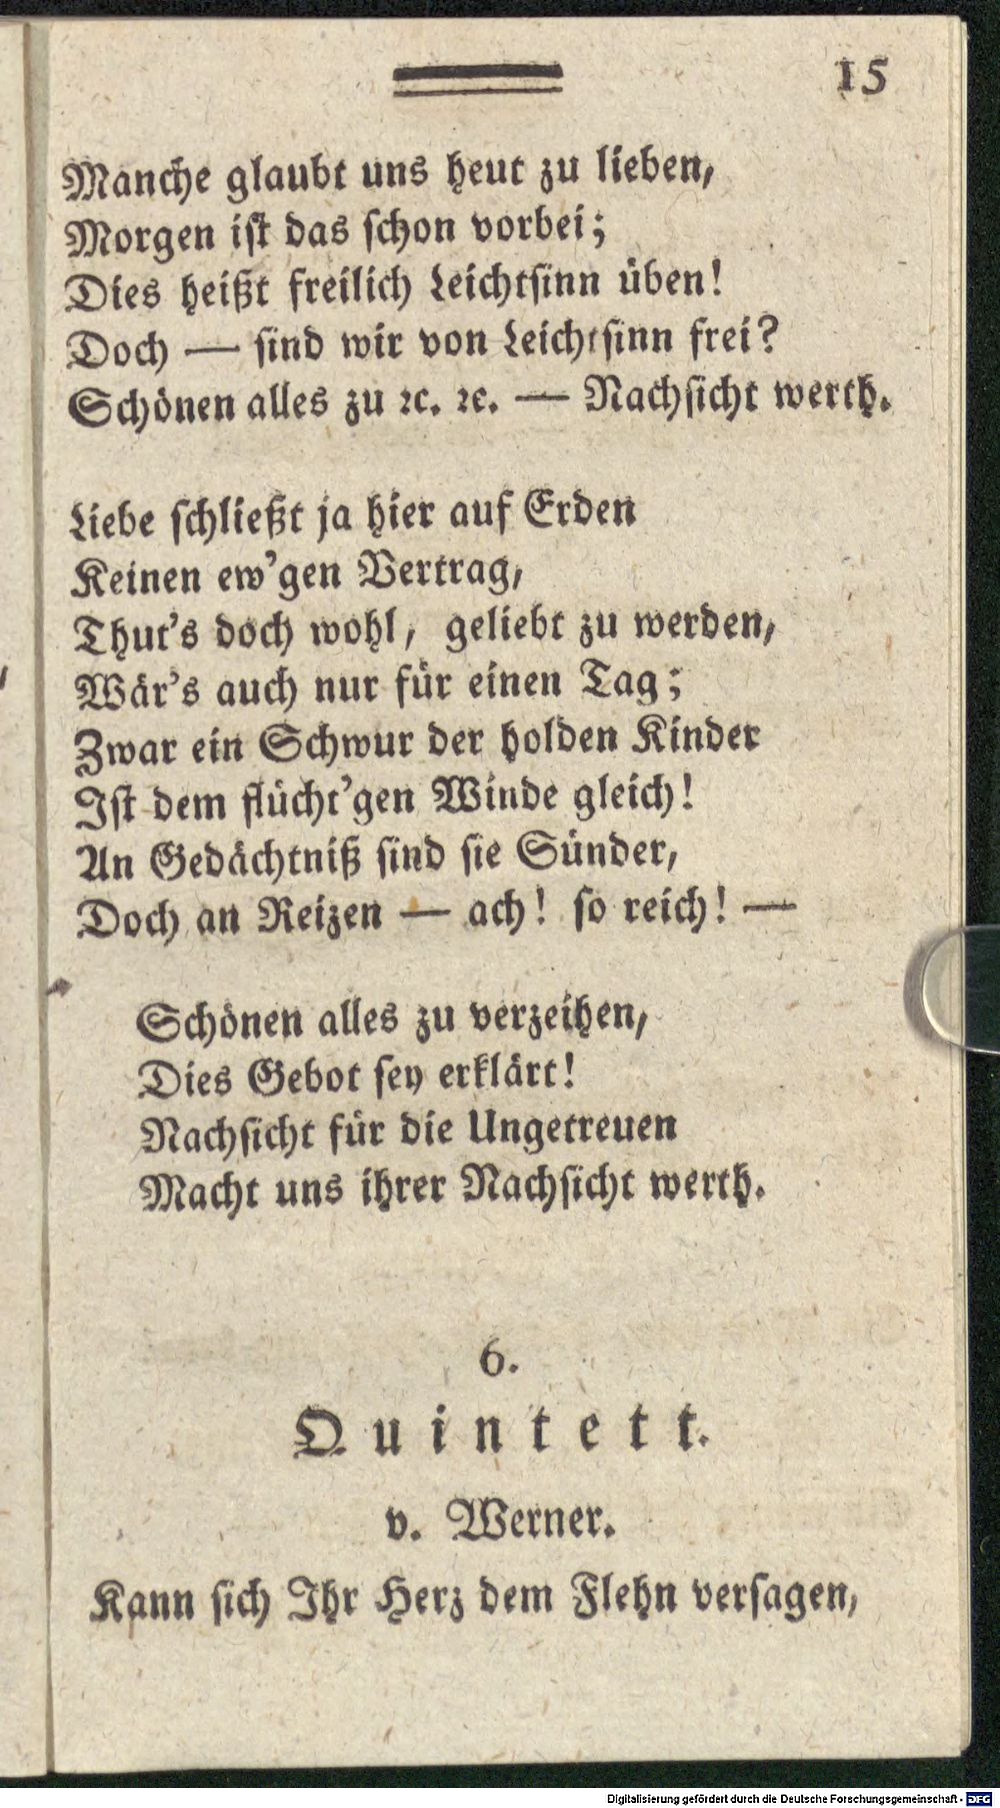 15
Manche glaubt uns heut zu lieben,
Morgen ist das schon vorbei;
Dies heißt freilich Leichtsinn üben!
Doch — sind wir von Leichtsinn frei?
Schönen alles zu ꝛc. ꝛc. — Nachsicht werth.
Liebe schließt ja hier auf Erden
Keinen ew'gen Vertrag,
Thut's doch wohl, geliebt zu werden,
Wär's auch nur für einen Tag;
Zwar ein Schwur der holden Kinder
Ist dem flücht'gen Winde gleich!
An Gedächtniß sind sie Sünder,
Doch an Reizen — ach! so reich! —
Schönen alles zu verzeihen,
Dies Gebot sey erklärt!
Nachsicht für die Ungetreuen
Macht uns ihrer Nachsicht werth.
6.
Quintett.
v. Werner.
Kann sich Ihr Herz dem Flehn versagen,
Digitalisierung gefördert durch die Deutsche Forschungsgemeinschaft - DFG